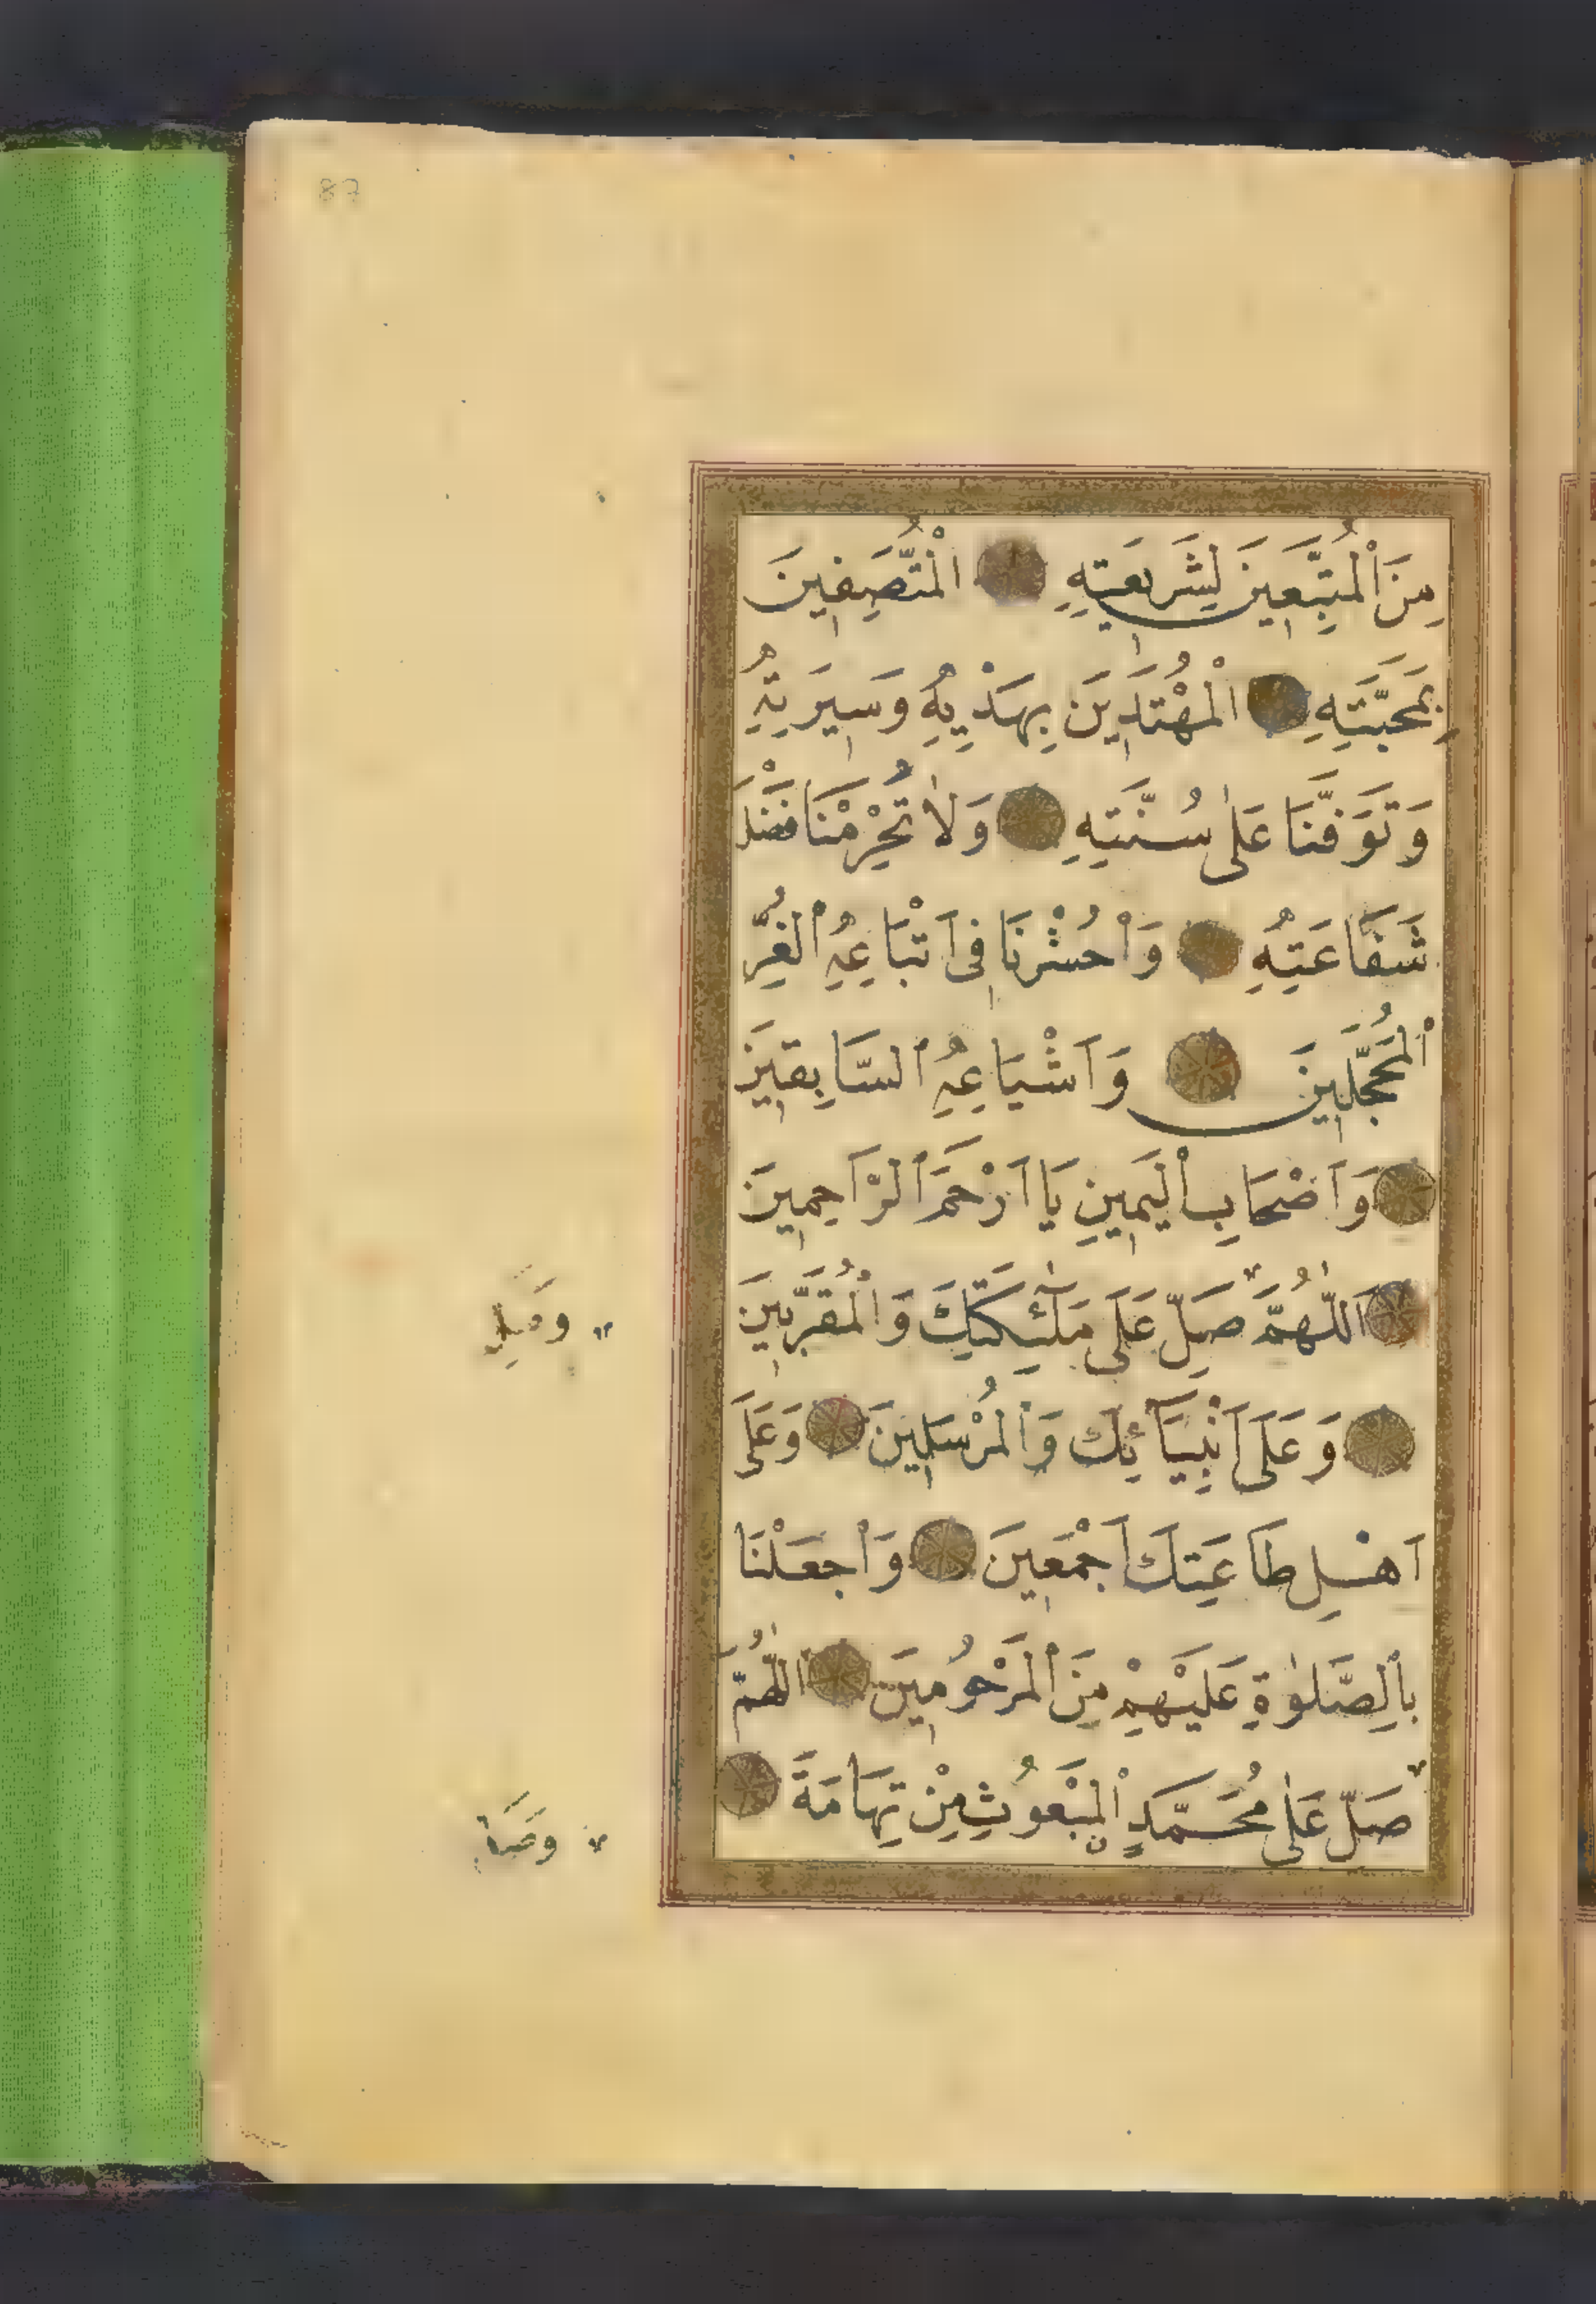 87
مِنَ الْمُتَّبِعِينَ لِشَرِيعَتِهِ الْمُتَّصِفِينَ
بِمَحَبَّتِهِ الْمُهْتَدِينَ بِهَدْيِهِ وَسِيرَتِهِ
وَتَوَفَّنَا عَلٰى سُنَّتِهِ وَلَا تَحْرِمْنَا فَضْلَ
شَفَاعَتِهِ وَاحْشُرْنَا فِى اَتْبَاعِهِ الْغُرِّ
الْمُحَجَّلِينَ وَاَشْيَاعِهِ السَّابِقِينَ
وَاَصْحَابِ الْيَمِينِ يَا اَرْحَمَ الرَّاحِمِينَ
اَللّٰهُمَّ صَلِّ عَلَى مَلٰٓئِكَتِكَ وَالْمُقَرَّبِينَ
وَعَلَى اَنْبِيَآئِكَ وَالْمُرْسَلِينَ وَعَلَى
اَهْلِ طَاعَتِكَ اَجْمَعِينَ وَاجْعَلْنَا
بِالصَّلٰوةِ عَلَيْهِمْ مِنَ الْمَرْحُومِينَ اَللّٰهُمَّ
صَلِّ عَلٰى مُحَمَّدٍ الْمَبْعُوثِ مِنْ تِهَامَةَ